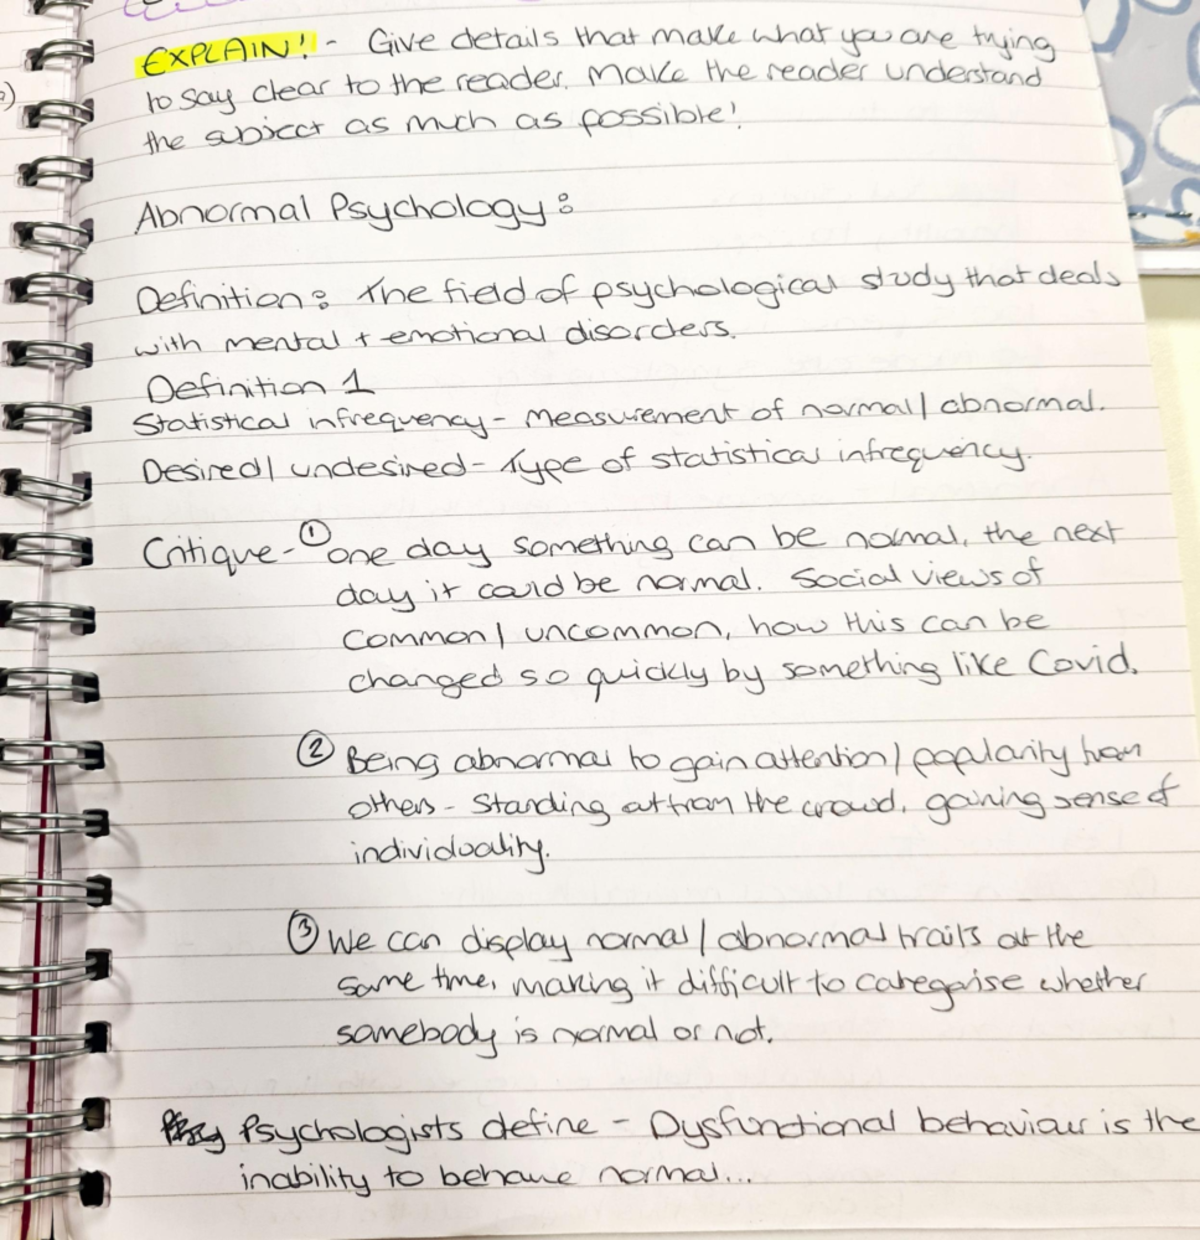 EXPLAIN! - Give details that make what you are trying
to say clear to the reader. Make the reader understand
the subject as much as possible!
Abnormal Psychology:
Definition: The field of psychological study that deals
with mental + emotional disorders.
Definition 1
Statistical infrequency - Measurement of normal/abnormal.
Desired/undesired - Type of statistical infrequency.
Critique - ① one day something can be normal, the next
day it could be normal. Social views of
common/uncommon, how this can be
changed so quickly by something like Covid.
② Being abnormal to gain attention/popularity from
others - standing out from the crowd, gaining sense of
individuality.
③ We can display normal/abnormal traits at the
same time, making it difficult to categorise whether
somebody is normal or not.
Psychologists define - Dysfunctional behaviour is the
inability to behave normal...